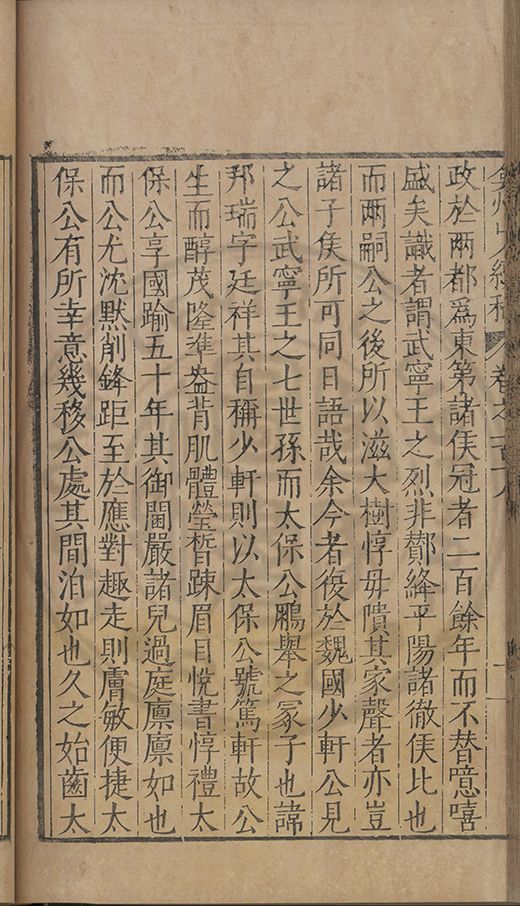 弇州山人續稿 卷之一百八
政於兩都爲東第諸侯冠者二百餘年而不替噫嘻
盛矣識者謂武寧王之烈非酇絳平陽諸徹侯比也
而兩嗣公之後所以滋大樹惇毋隤其家聲者亦豈
諸子侯所可同日語哉余今者復於魏國少軒公見
之公武寧王之七世孫而太保公鵬舉之冢子也諱
邦瑞字廷祥其自稱少軒則以太保公號篤軒故公
生而醇茂隆準盎背肌體瑩晳踈眉目悅書惇禮太
保公享國踰五十年其御閫嚴諸兒過庭廩廩如也
而公尤沈默削鋒距至於應對趣走則膚敏便捷太
保公有所幸意幾移公處其間泊如也久之始齒太